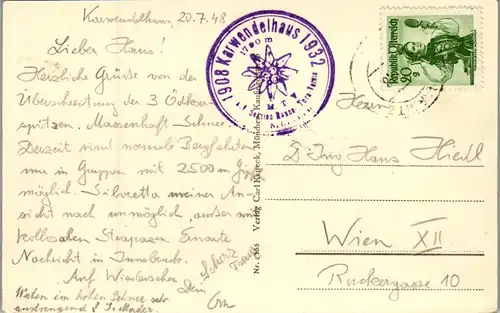 Karwendelhaus, 20.7.48
Lieber Hans!
Herzliche Grüsse von der
Überschreitung der 3 Ödkar-
spitzen. Massenhaft Schnee.
Derzeit sind normale Bergfahrten
nur in Gruppen mit 2500 m
möglich. Silvretta meiner An-
sicht nach unmöglich, außer mit
kolossalen Strapazen. Erneute
Nachricht in Innsbruck.
Auf Wiedersehen
Dein
Waten im hohen Schnee sehr
anstrengend
1908 Karwendelhaus 1932
1790 m
M T V
Nr. Verlag Carl München
Republik Österreich
90 g
Herrn
D Ing Hans Hiedl
Wien XII
Ruckergasse 10